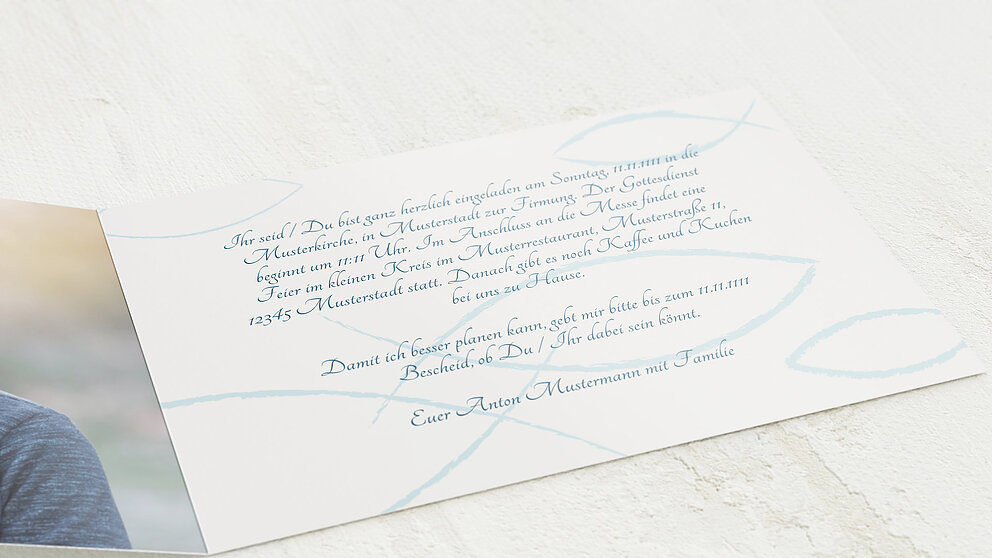 Ihr seid / Du bist ganz herzlich eingeladen am Sonntag, 11.11.1111 in die
Musterkirche, in Musterstadt zur Firmung. Der Gottesdienst
beginnt um 11:11 Uhr. Im Anschluss an die Messe findet eine
Feier im kleinen Kreis im Musterrestaurant, Musterstraße 11,
12345 Musterstadt statt. Danach gibt es noch Kaffee und Kuchen
bei uns zu Hause.
Damit ich besser planen kann, gebt mir bitte bis zum 11.11.1111
Bescheid, ob Du / Ihr dabei sein könnt.
Euer Anton Mustermann mit Familie